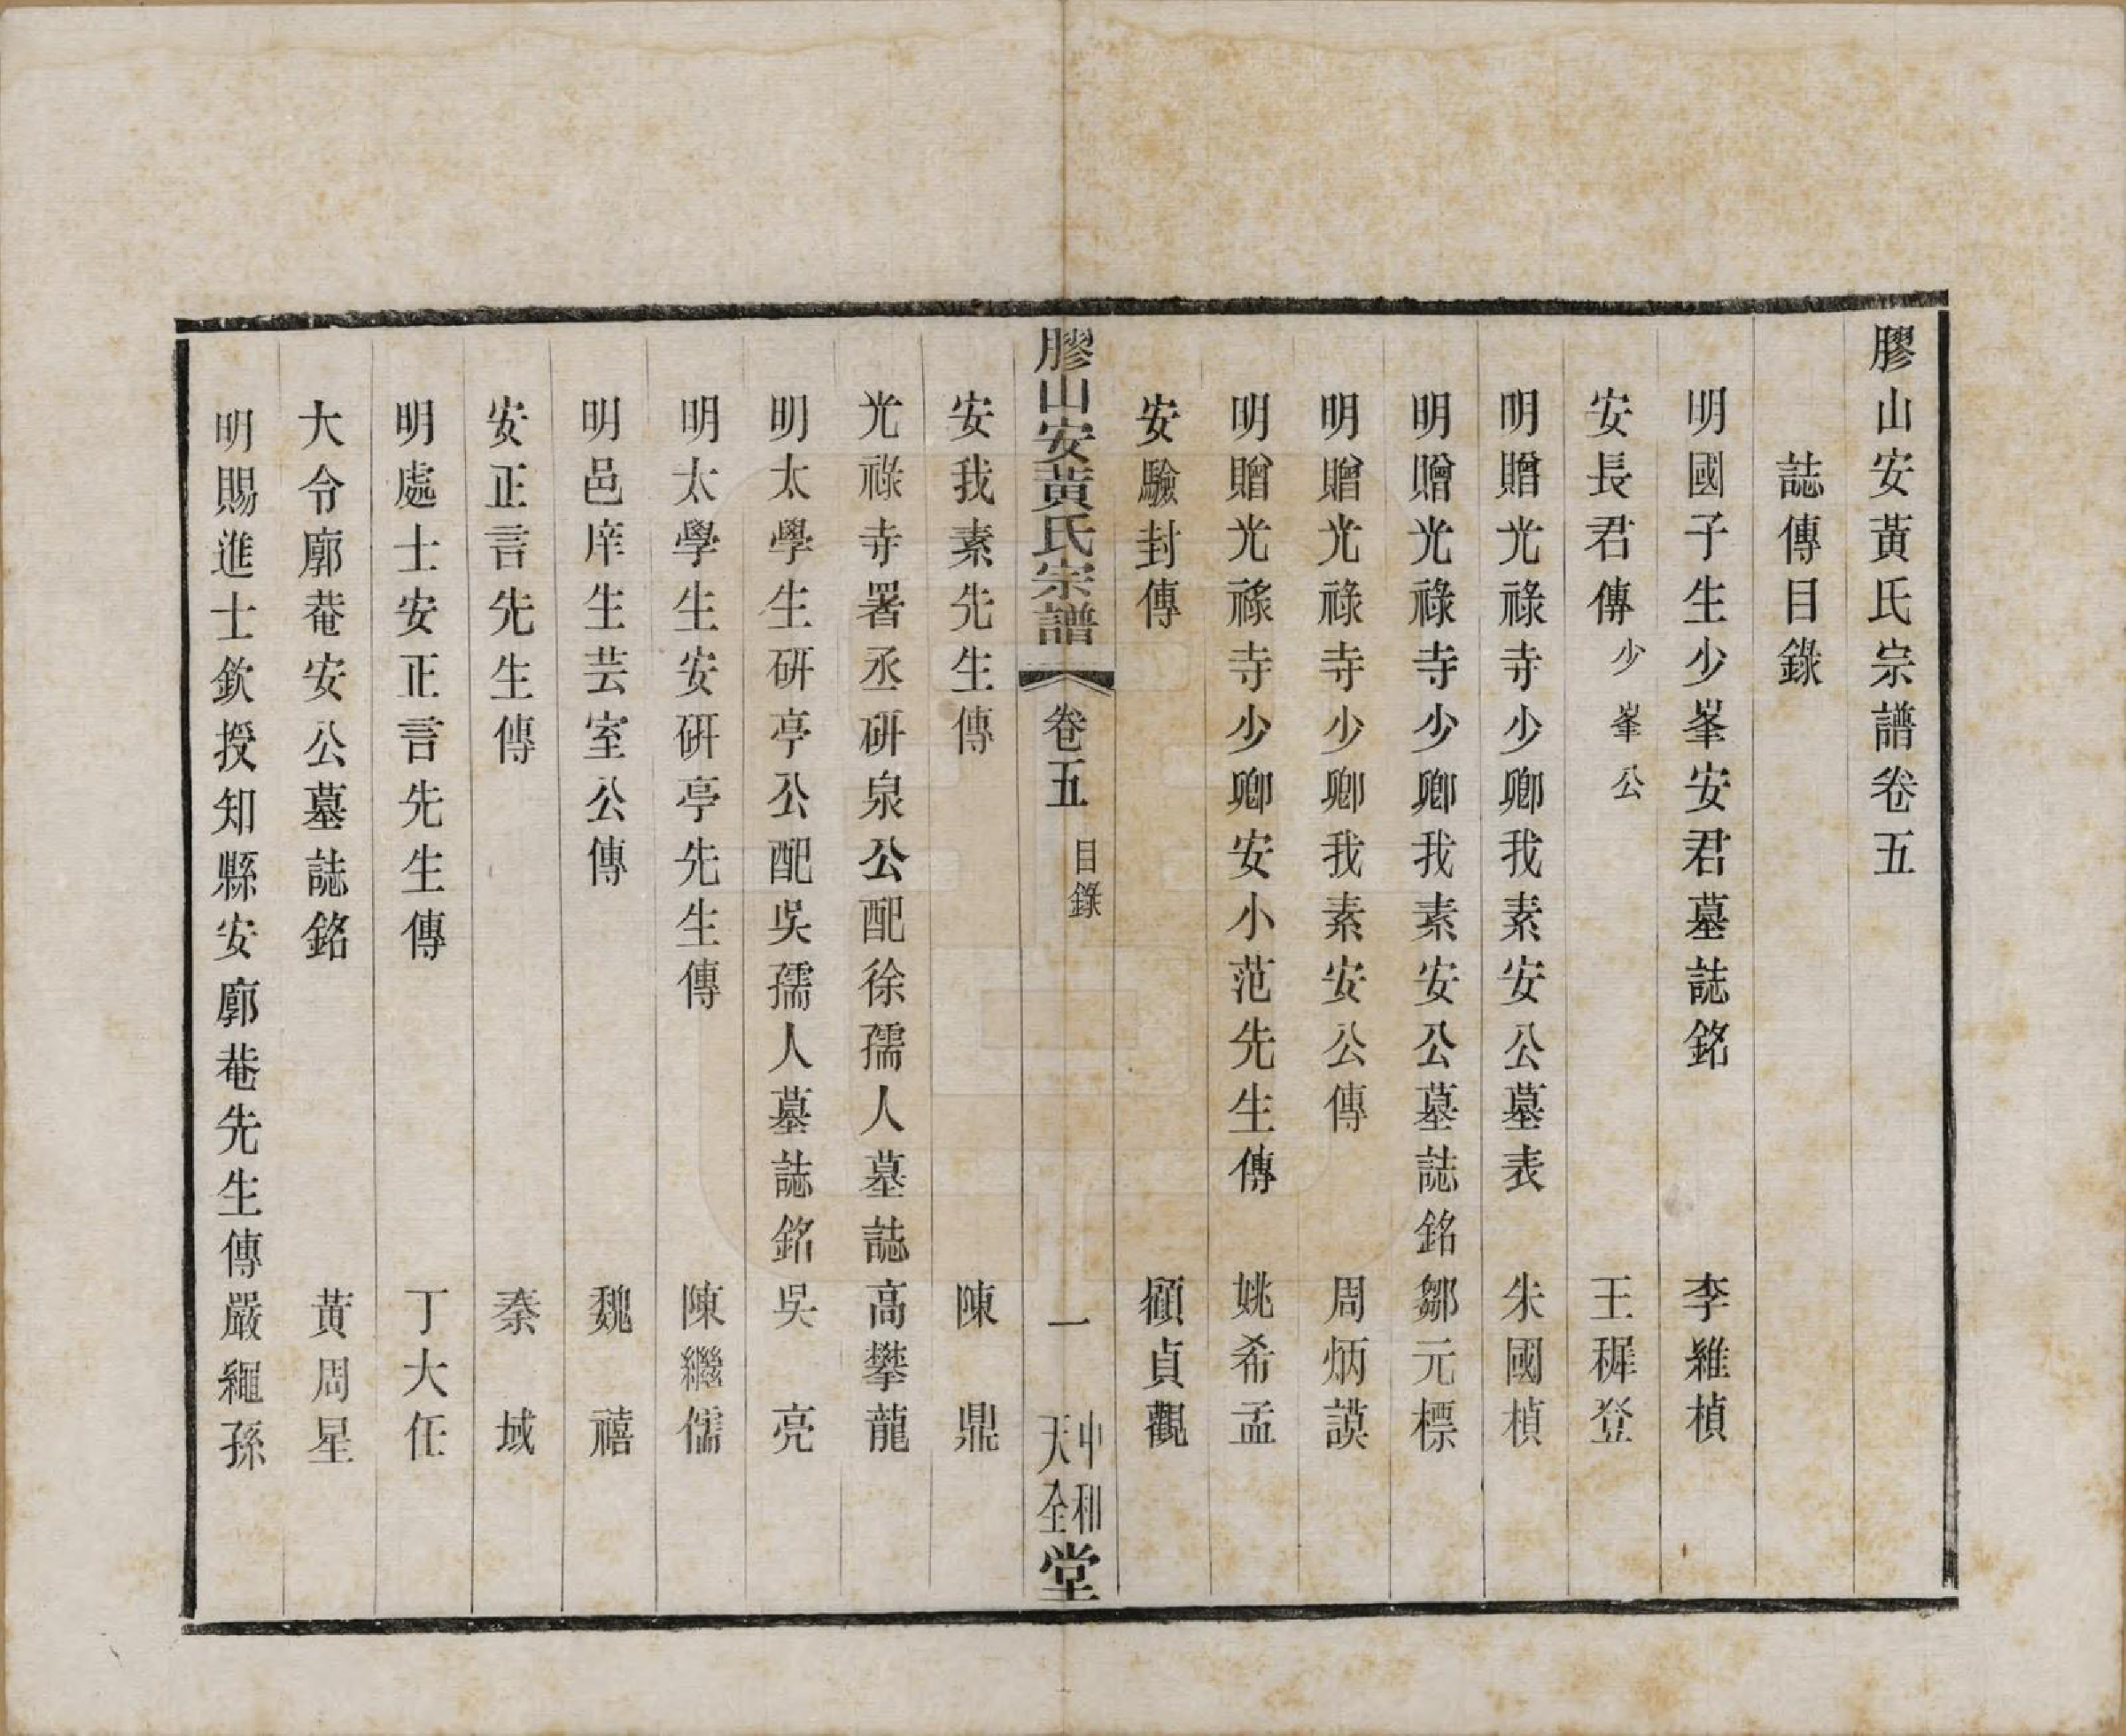 膠山安黃氏宗譜卷五
誌傳目錄
明國子生少峯安君墓誌銘 李維楨
安長君傳 少峯公 王穉登
明贈光祿寺少卿我素安公墓表 朱國楨
明贈光祿寺少卿我素安公墓誌銘 鄒元標
明贈光祿寺少卿我素安公傳 周炳謨
明贈光祿寺少卿安小范先生傳 姚希孟
安驗封傳 顧貞觀
膠山安黃氏宗譜 卷五 目錄 一 中和天全堂
安我素先生傳 陳鼎
光祿寺署丞硏泉公配徐孺人墓誌 高攀龍
明太學生硏亭公配吳孺人墓誌銘 吳亮
明太學生安硏亭先生傳 陳繼儒
明邑庠生芸室公傳 魏禧
安正言先生傳 秦域
明處士安正言先生傳 丁大任
大令廓菴安公墓誌銘 黃周星
明賜進士欽授知縣安廓菴先生傳 嚴繩孫